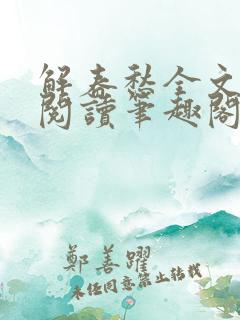 解春愁全文
閱讀筆趣閣
鄭善躍
未经同意禁止转载